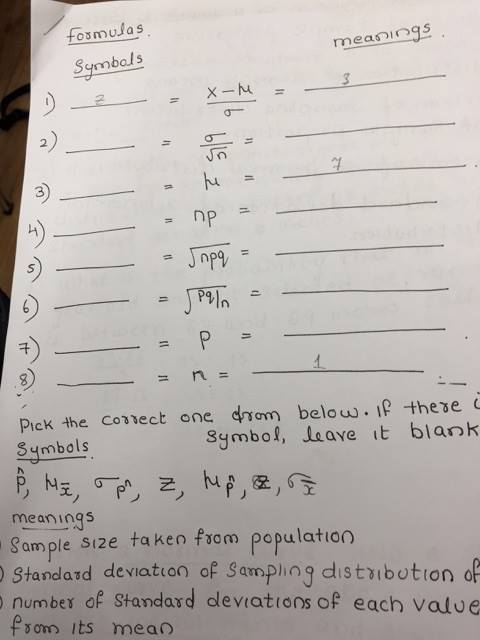 Formulas. meanings.
Symbols
1) z = x-μ/σ = 3
2) = σ/√n =
3) = μ = 7
4) = np =
5) = √npq =
6) = √pq/n =
7) = p =
8) = n = 1
Pick the correct one from below. If there
symbol, leave it blank
Symbols.
p̂, μx̄, σp̂, z, μp̂, σx̄
meanings
Sample size taken from population
Standard deviation of Sampling distribution of
number of Standard deviations of each value
from its mean